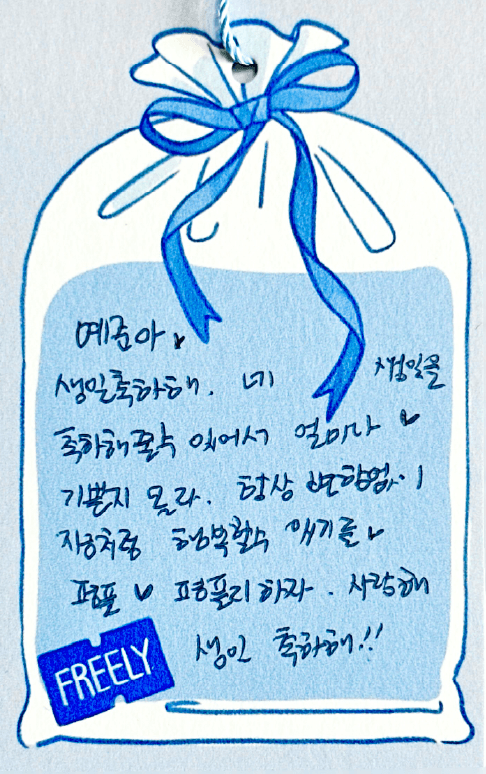 예준아
생일축하해. 네 생일을
축하해줄수 있어서 얼마나 ♥
기쁜지 몰라. 항상 변함없이
지금처럼 행복할수 있기를 ♥
퍼플 ♥ 퍼플리하자. 사랑해
생일 축하해!!
FREELY